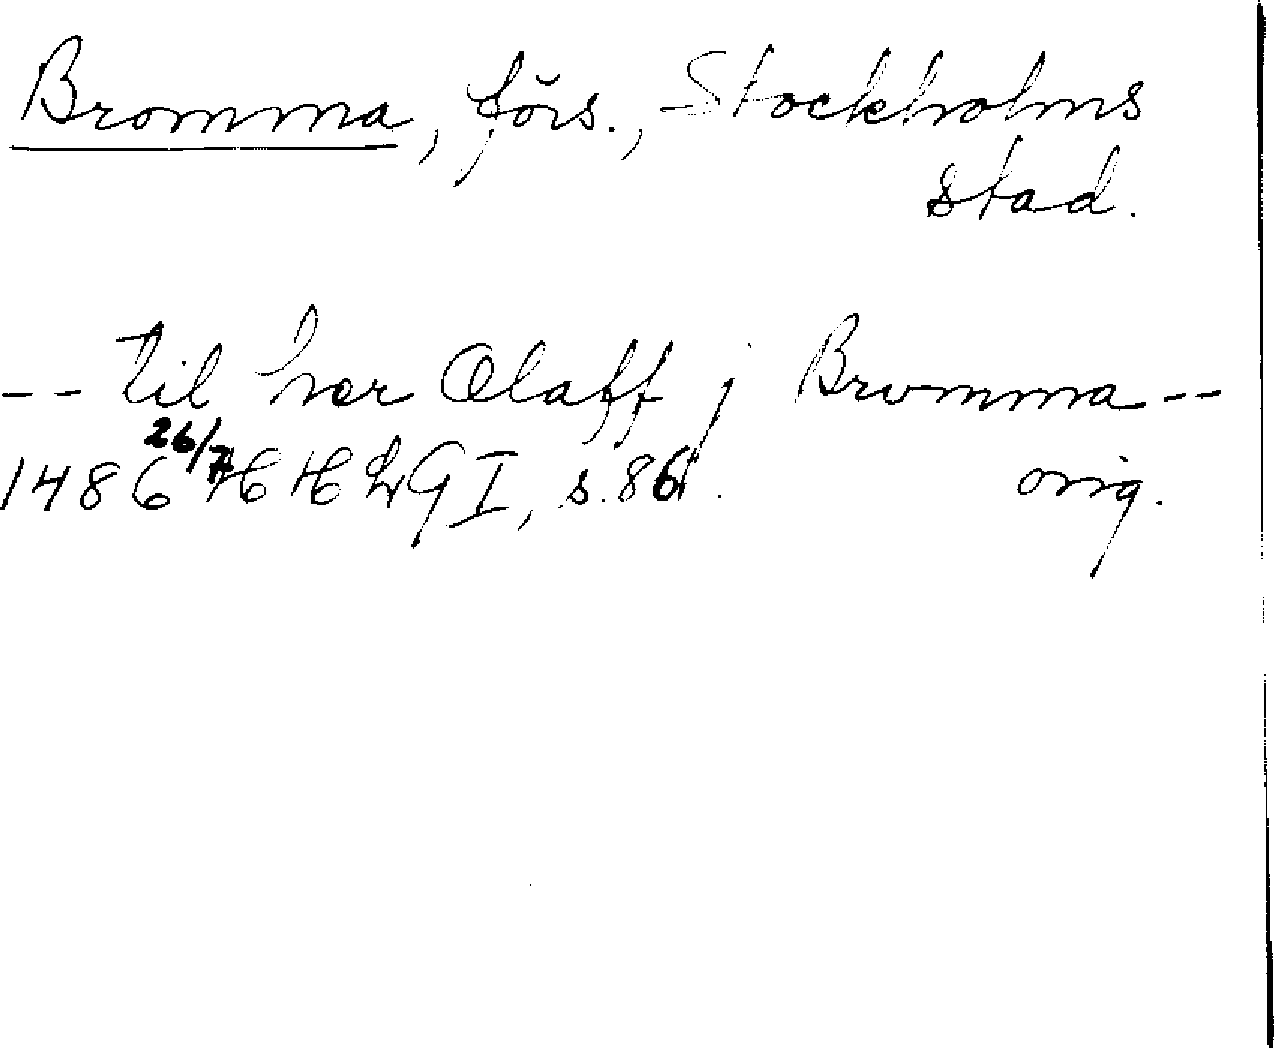 Bromma, förs., Stockholms
stad.
-- til her Olaff j Bromma --
1486 26/7 HHLG I, s. 86. orig.